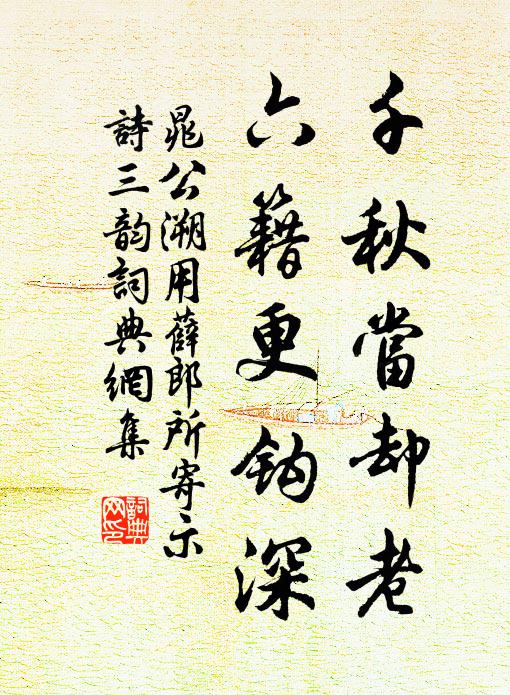 千秋當却老
六籍更鈎深
晁公溯用薛郎所寄示
詩三韵詞典網集
詞典
网印